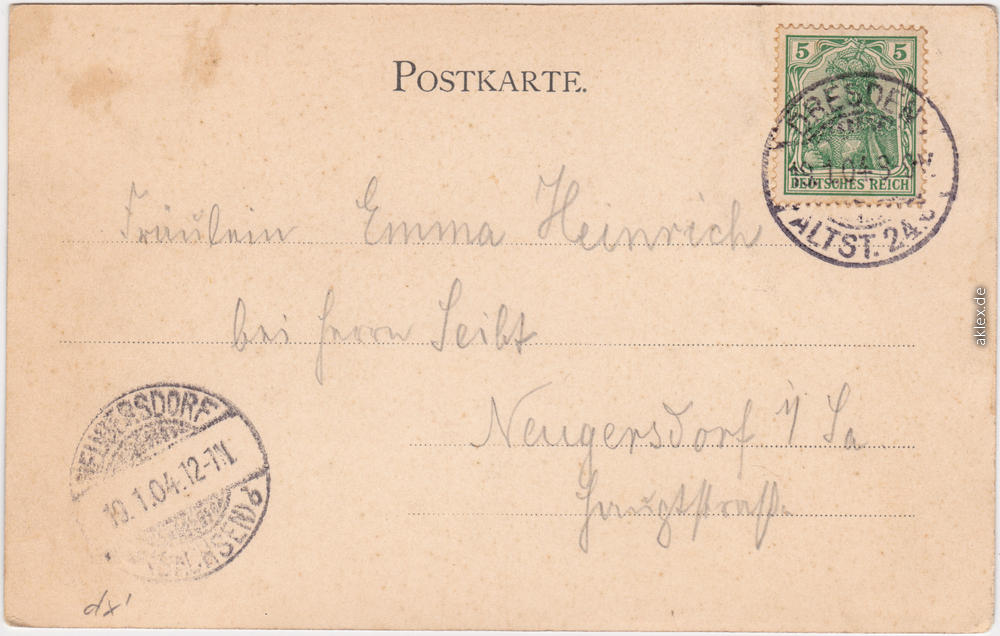 POSTKARTE.
5 5
DEUTSCHES REICH
DRESDEN
19.1.04.3
ALTST. 24.
Fräulein Emma Heinrich
bei Herrn Seibt
Neugersdorf i/Sa.
Hauptstraße.
NEUGERSDORF
19.1.04.12-1N.
(SACHSEN) b
aklex.de